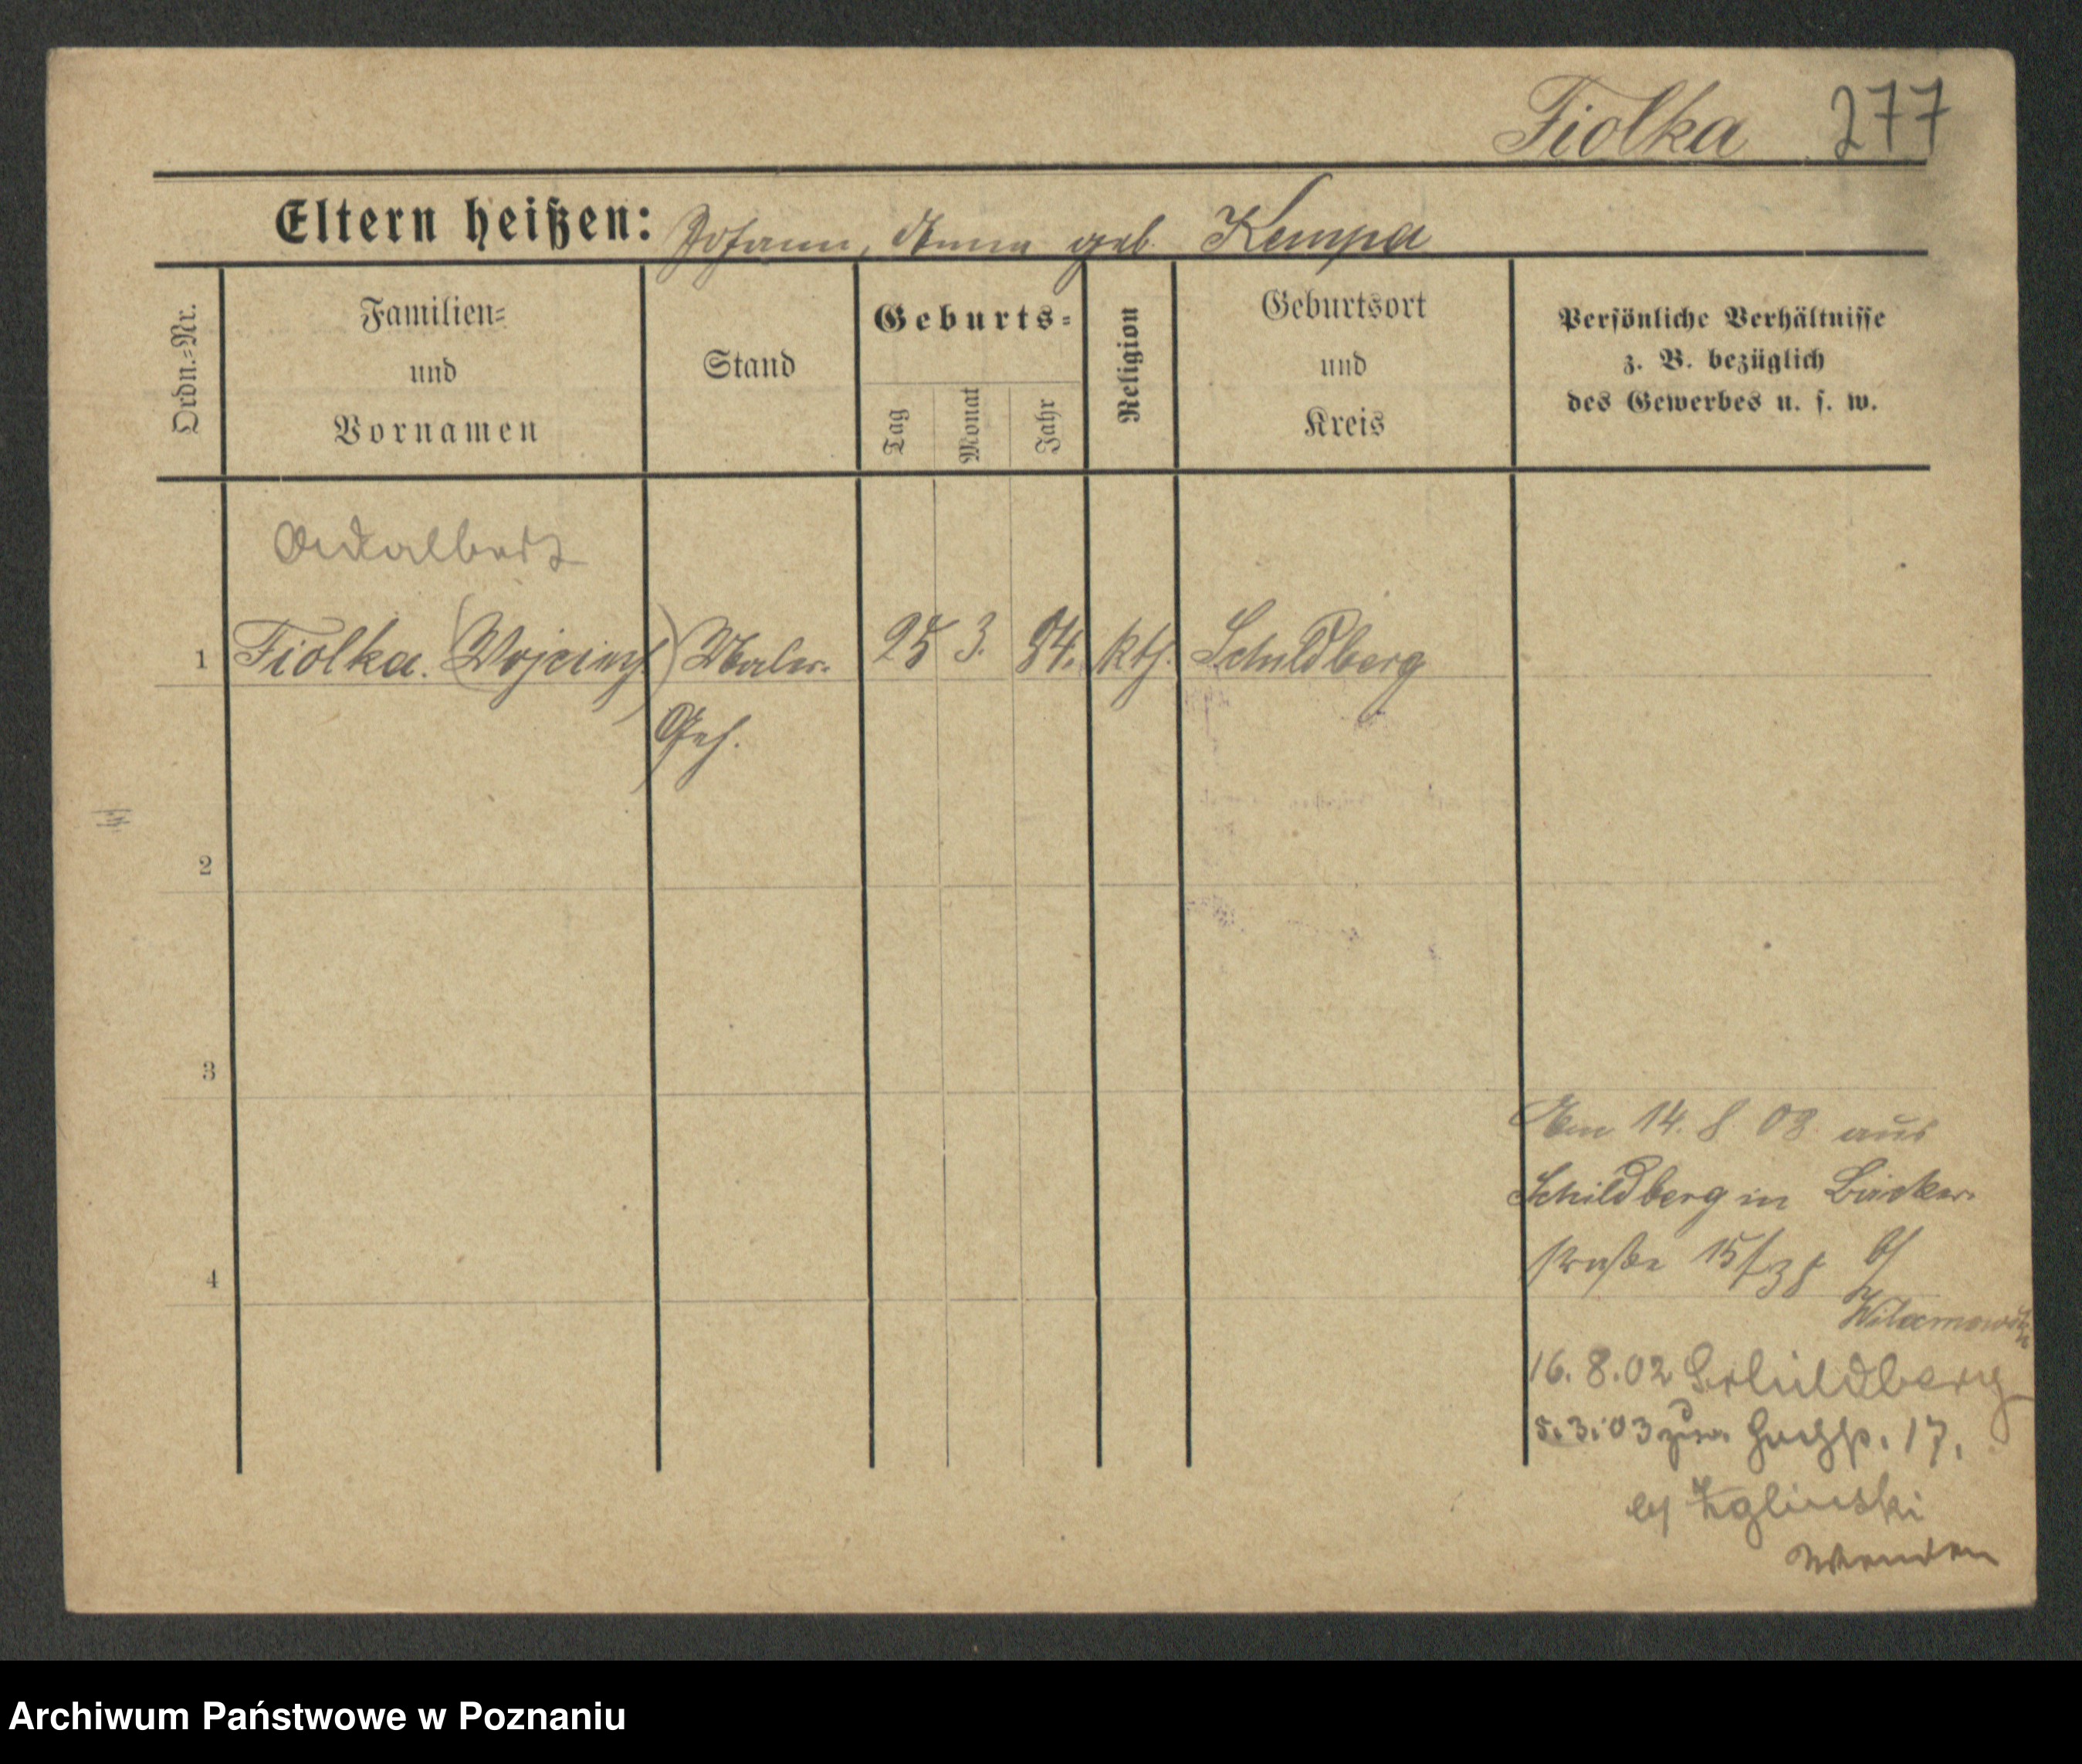 Fiolka 277
Eltern heißen: Johann, Anna geb. Kempa
Ordn.-Nr.
Familien-
und
Vornamen
Stand
Geburts-
Tag
Monat
Jahr
Religion
Geburtsort
und
Kreis
Persönliche Verhältnisse
z. B. bezüglich
des Gewerbes u. s. w.
Adalbert
1 Fiolka. (Wojciech) Maler- 25 3. 84. kth. Schildberg
Geh.
2
3
4
Am 14. 8 02 aus
Schildberg in Bäcker-
straße 15/ b/
16. 8. 02 Schildberg
5. 3. 03 zur 17.
b/ Zglinski
Wenden
Archiwum Państwowe w Poznaniu